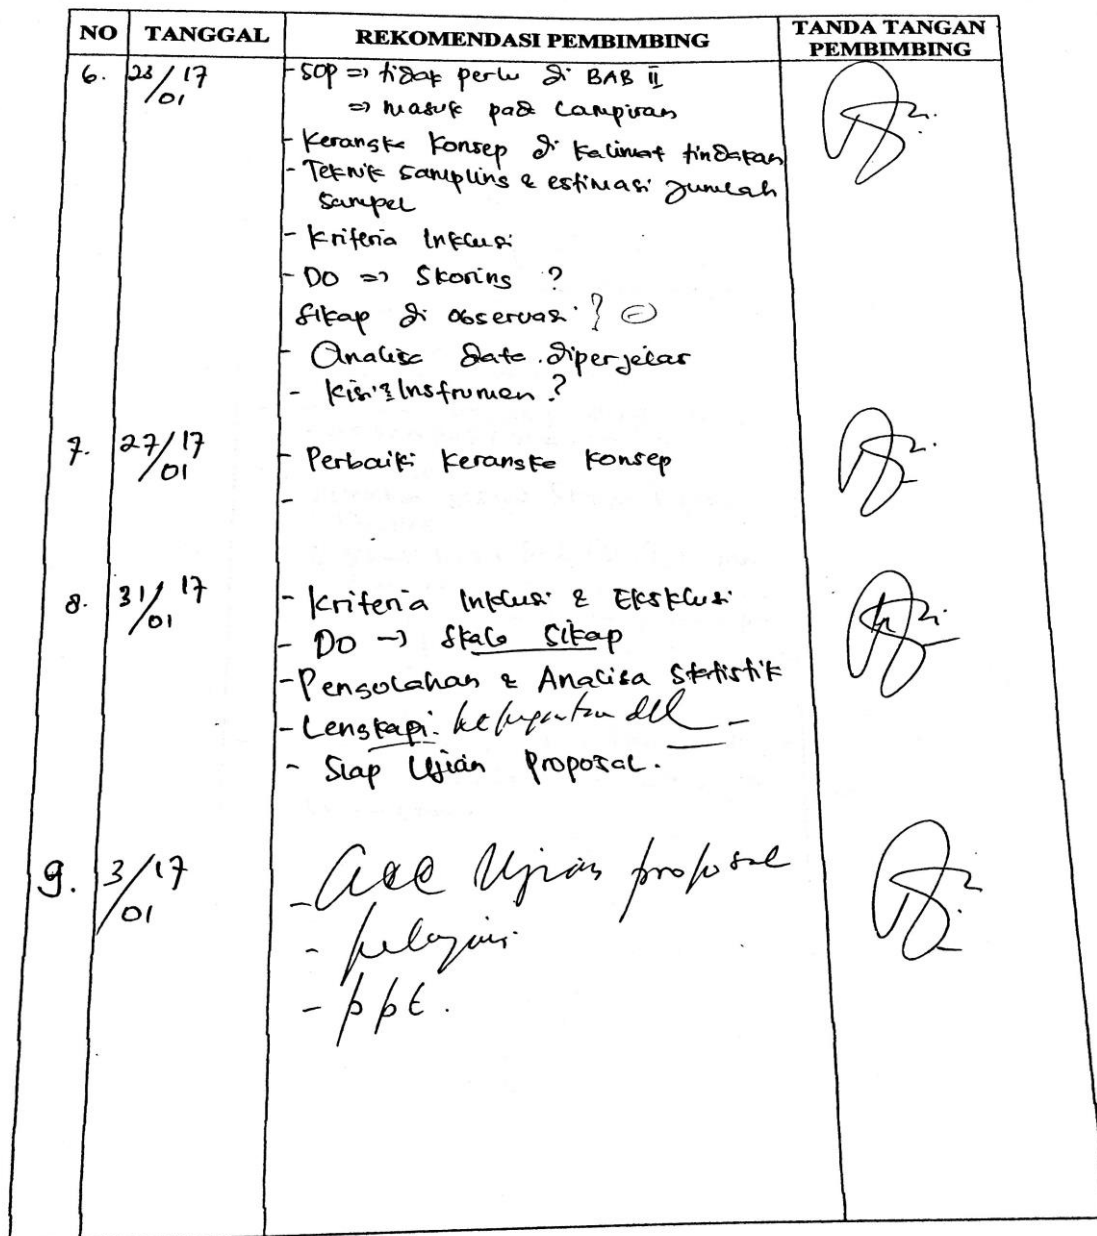 NO TANGGAL REKOMENDASI PEMBIMBING TANDA TANGAN PEMBIMBING
6. 23/01 17 - SOP => tidak perlu di BAB II
=> masuk pada Lampiran
- Kerangka Konsep di kalimat tindakan
- Teknik sampling & estimasi Jumlah
Sampel
- Kriteria Inklusi
- DO => Skoring ?
Sikap di observasi ? (-)
- Analisa data diperjelas
- Kisi2 Instrumen ?
7. 27/01 17 - Perbaiki Kerangka Konsep
-
8. 31/01 17 - Kriteria Inklusi & Eksklusi
- DO -> Skala Sikap
- Pengolahan & Analisa Statistik
- Lengkapi dll
- Siap Ujian Proposal.
9. 3/01 17 - acc Ujian proposal
- pelajari
- ppt.